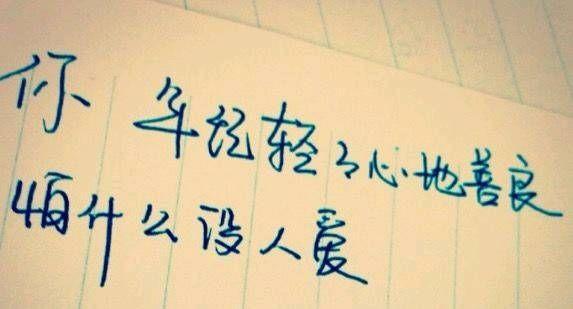 你 年纪轻轻心地善良
怕什么没人爱